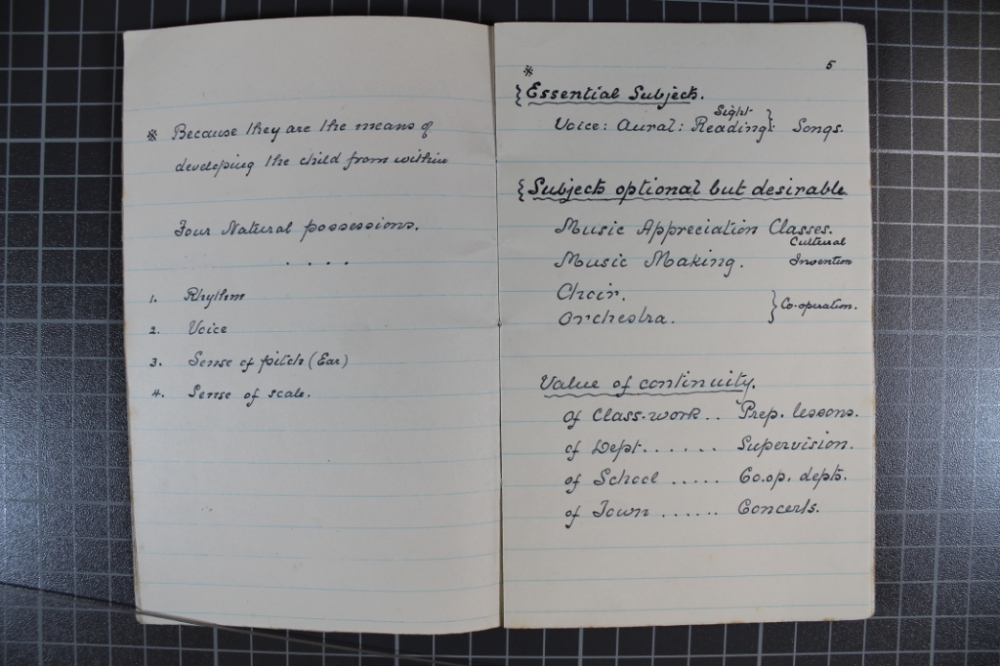 ※ Because they are the means of
developing the child from within
Four Natural possessions.
. . . .
1. Rhythm
2. Voice
3. Sense of pitch (Ear)
4. Sense of scale.
5
※
{Essential Subjects.
Sight
Voice: Aural: Reading}: Songs.
{Subjects optional but desirable
Music Appreciation Classes.
Cultural
Music Making. Invention
Choir.
Orchestra. } Co-operation.
Value of continuity.
Of Class-work .. Prep. lessons.
of Dept. ..... Supervision.
of School ..... Co.op. depts.
of Town ...... Concerts.